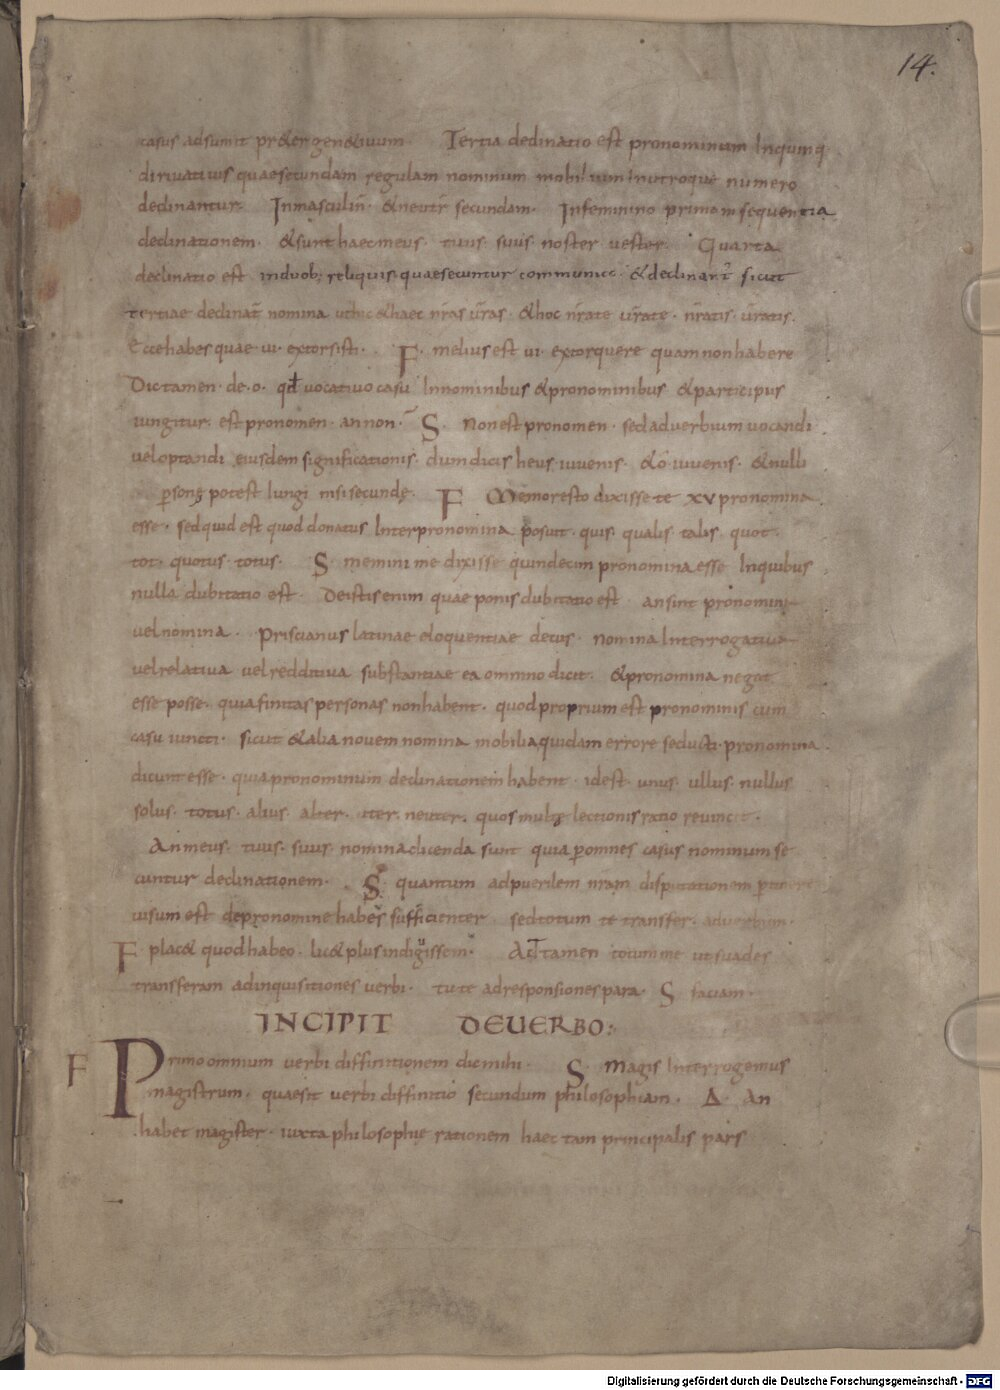 14.
casus adsumit pr&er gen&iuum. Tertia declinatio est pronominum Inquinq
diriuatiuis quae secundam regulam nominum mobilium Inutroque numero
declinantur. Inmasculiñ. &neutř secundam. Infeminino primam sequentia
declinationem. &sunt haec meus. tuus. suus. noster. uester. Quarta
declinatio est induob; reliquis quae secuntur communicc. &declinant̃ sicut
tertiae declinat̃ nomina ut hic &haec nr̃as ur̃as. &hoc nr̃ate ur̃ate. nr̃atis. ur̃atis.
Ecce habes quae ui extorsisti. F. melius est ui extorquere quam non habere
Dic tamen. de. o. qđ uocatiuo casu Innominibus &pronominibus &participus
iungitur. est pronomen. an non. S. Non est pronomen. sed aduerbium uocandi
uel optandi eiusdem significationis. dum dicis heus iuuenis. &o iuuenis. &nulli
p̱sonę potest Iungi nisi secundę. F Memoresto dixisse te xv pronomina
esse. sed quid est quod donatus Inter pronomina posuit. quis. qualis. talis. quot.
tot. quotus. totus. S. memini me dixisse quindecim pronomina esse Inquibus
nulla dubitatio est. De istis enim quae ponis dubitatio est. an sint pronomina
uel nomina. Priscianus latinae eloquentiae decus. nomina Interrogatiua
uel relatiua uel redditiua substantiae ea omnino dicit. &pronomina negat
esse posse. quia finitas personas non habent. quod proprium est pronominis cum
casu iuncti. sicut &alia nouem nomina mobilia quidam errore seducti. pronomina
dicunt esse. quia pronominum declinationem habent. idest. unus. ullus. nullus
solus. totus. alius. alter. uter. neuter. quos multę lectionis ratio reuincit.
An meus. tuus. suus nomina dicenda sunt quia p̱ omnes casus nominum se
cuntur declinationem. S. quantum ad puerilem nr̃am disputationem p̱tinere
uisum est de pronomine habes sufficienter sed totum te transfer. aduerbium.
F plac& quod habeo. lic& plus indiguissem. Attamen totum me ut suades
transferam ad inquisitiones uerbi. tu te ad responsiones para. S faciam.
INCIPIT DE UERBO:
F Primo omnium uerbi diffinitionem dic mihi. S. magis Interrogemus
magistrum. quae sit uerbi diffinitio secundum philosophiam. Δ. An
habet magister. iuxta philosophię rationem haec tam principalis pars
Digitalisierung gefördert durch die Deutsche Forschungsgemeinschaft - DFG